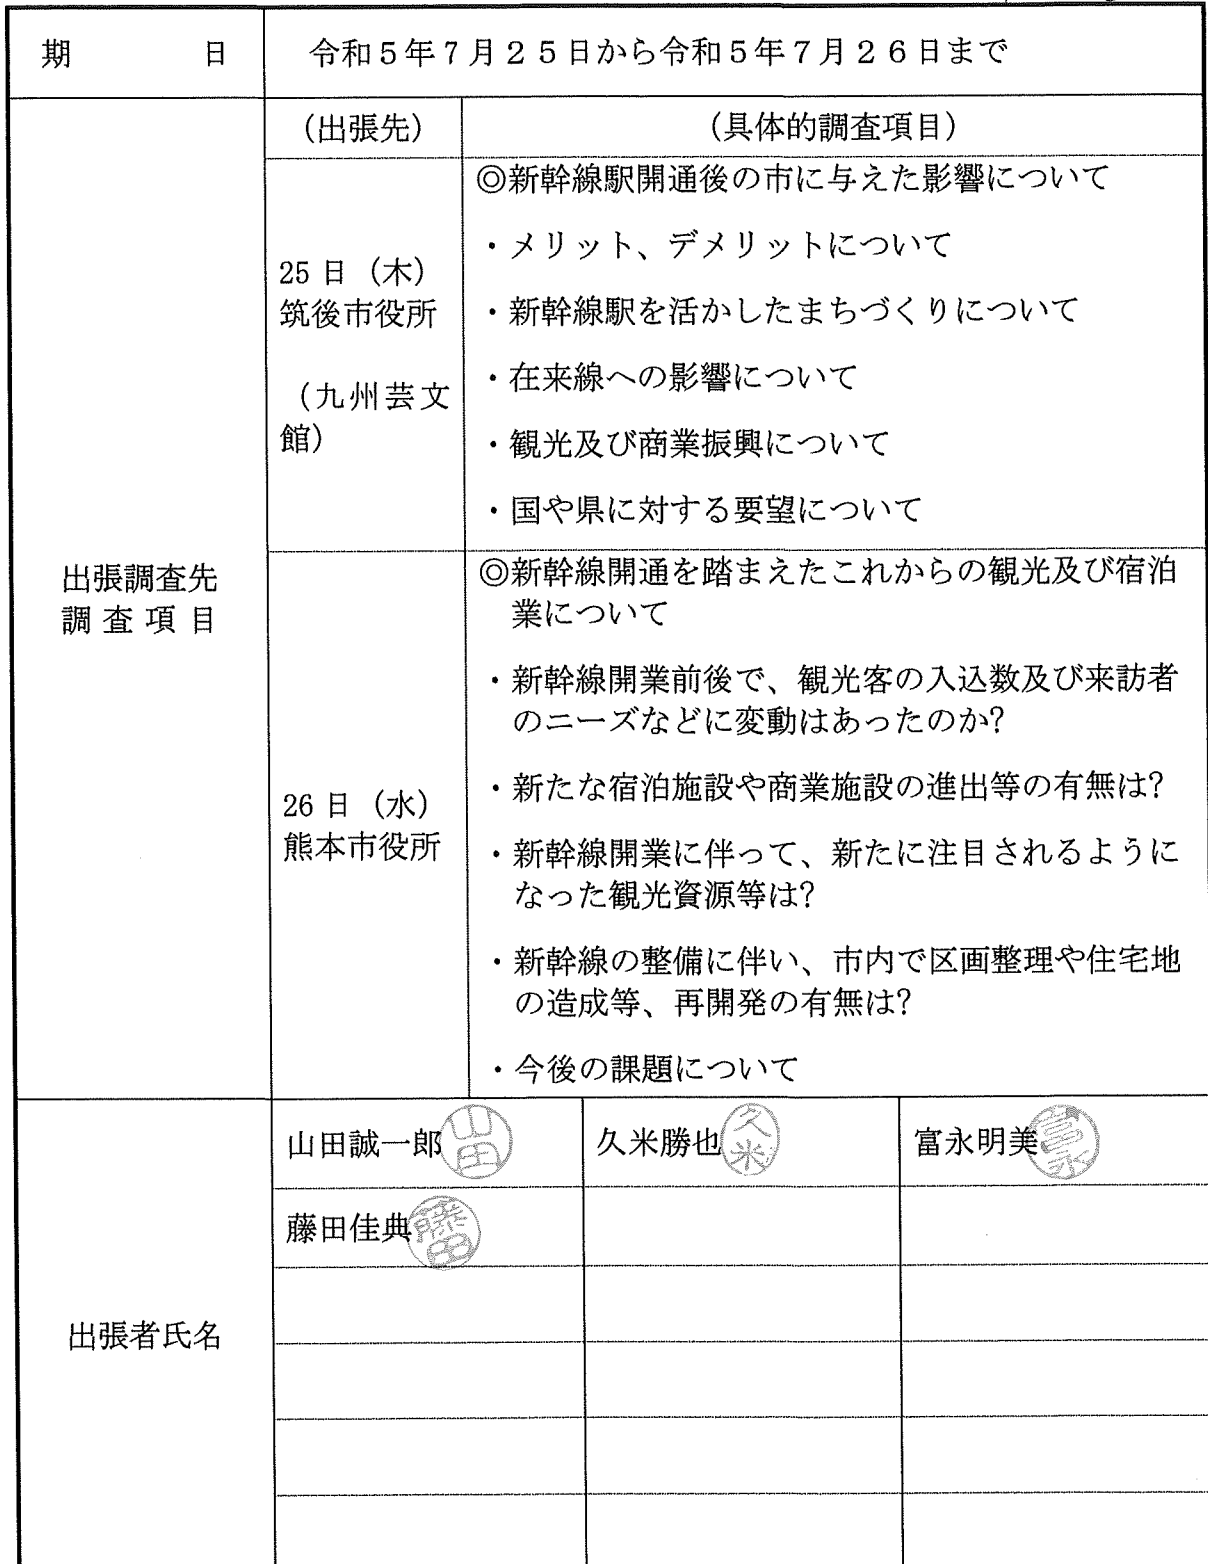 期　　　　日
令和５年７月２５日から令和５年７月２６日まで
出張調査先
調査項目
（出張先）
（具体的調査項目）
25日（木）
筑後市役所
（九州芸文
館）
◎新幹線駅開通後の市に与えた影響について
・メリット、デメリットについて
・新幹線駅を活かしたまちづくりについて
・在来線への影響について
・観光及び商業振興について
・国や県に対する要望について
26日（水）
熊本市役所
◎新幹線開通を踏まえたこれからの観光及び宿泊
業について
・新幹線開業前後で、観光客の入込数及び来訪者
のニーズなどに変動はあったのか?
・新たな宿泊施設や商業施設の進出等の有無は?
・新幹線開業に伴って、新たに注目されるように
なった観光資源等は?
・新幹線の整備に伴い、市内で区画整理や住宅地
の造成等、再開発の有無は?
・今後の課題について
出張者氏名
山田誠一郎 山田
久米勝也 久米
富永明美 富永
藤田佳典 藤田